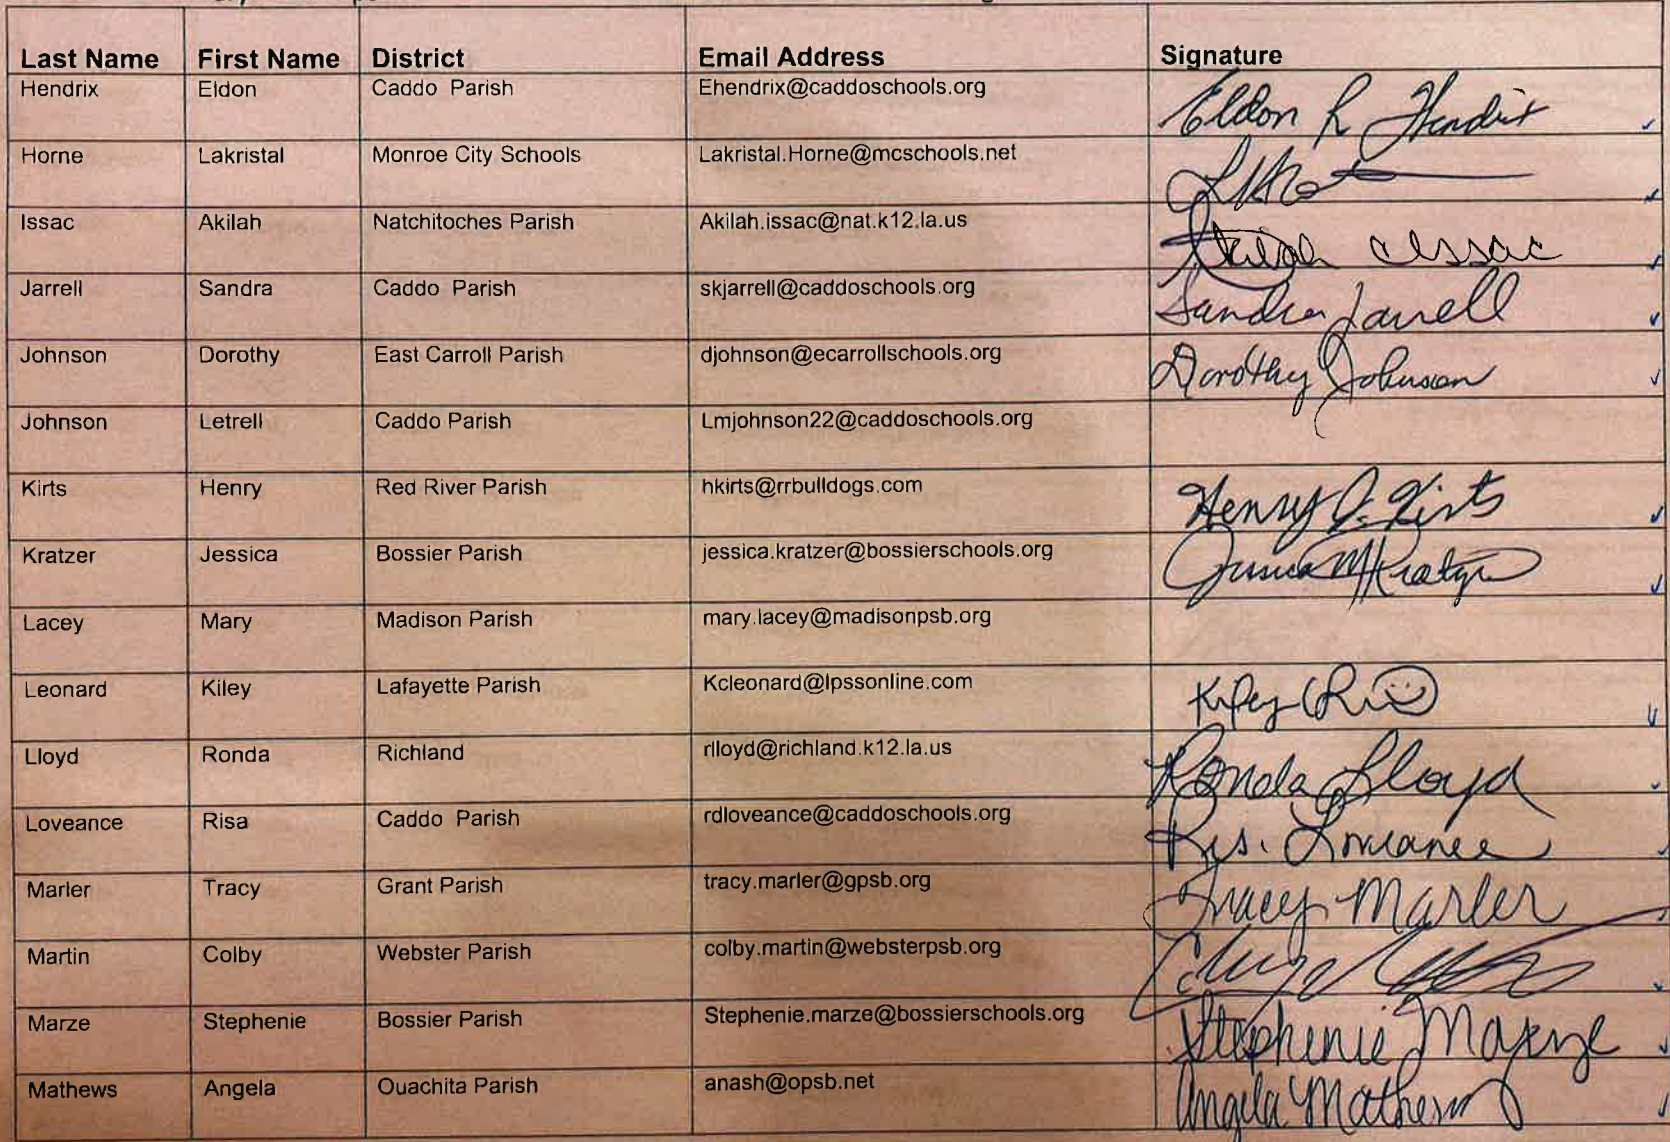 Last Name First Name District Email Address Signature
Hendrix Eldon Caddo Parish Ehendrix@caddoschools.org Eldon R Hendrix
Horne Lakristal Monroe City Schools Lakristal.Horne@mcschools.net
Issac Akilah Natchitoches Parish Akilah.issac@nat.k12.la.us Akilah Issac
Jarrell Sandra Caddo Parish skjarrell@caddoschools.org Sandra Jarrell
Johnson Dorothy East Carroll Parish djohnson@ecarrollschools.org Dorothy Johnson
Johnson Letrell Caddo Parish Lmjohnson22@caddoschools.org
Kirts Henry Red River Parish hkirts@rrbulldogs.com Henry J. Kirts
Kratzer Jessica Bossier Parish jessica.kratzer@bossierschools.org Jessica M Kratzer
Lacey Mary Madison Parish mary.lacey@madisonpsb.org
Leonard Kiley Lafayette Parish Kcleonard@lpssonline.com Kiley
Lloyd Ronda Richland rlloyd@richland.k12.la.us Ronda Lloyd
Loveance Risa Caddo Parish rdloveance@caddoschools.org Risa Loveance
Marler Tracy Grant Parish tracy.marler@gpsb.org Tracy Marler
Martin Colby Webster Parish colby.martin@websterpsb.org
Marze Stephenie Bossier Parish Stephenie.marze@bossierschools.org Stephenie Marze
Mathews Angela Ouachita Parish anash@opsb.net Angela Mathews